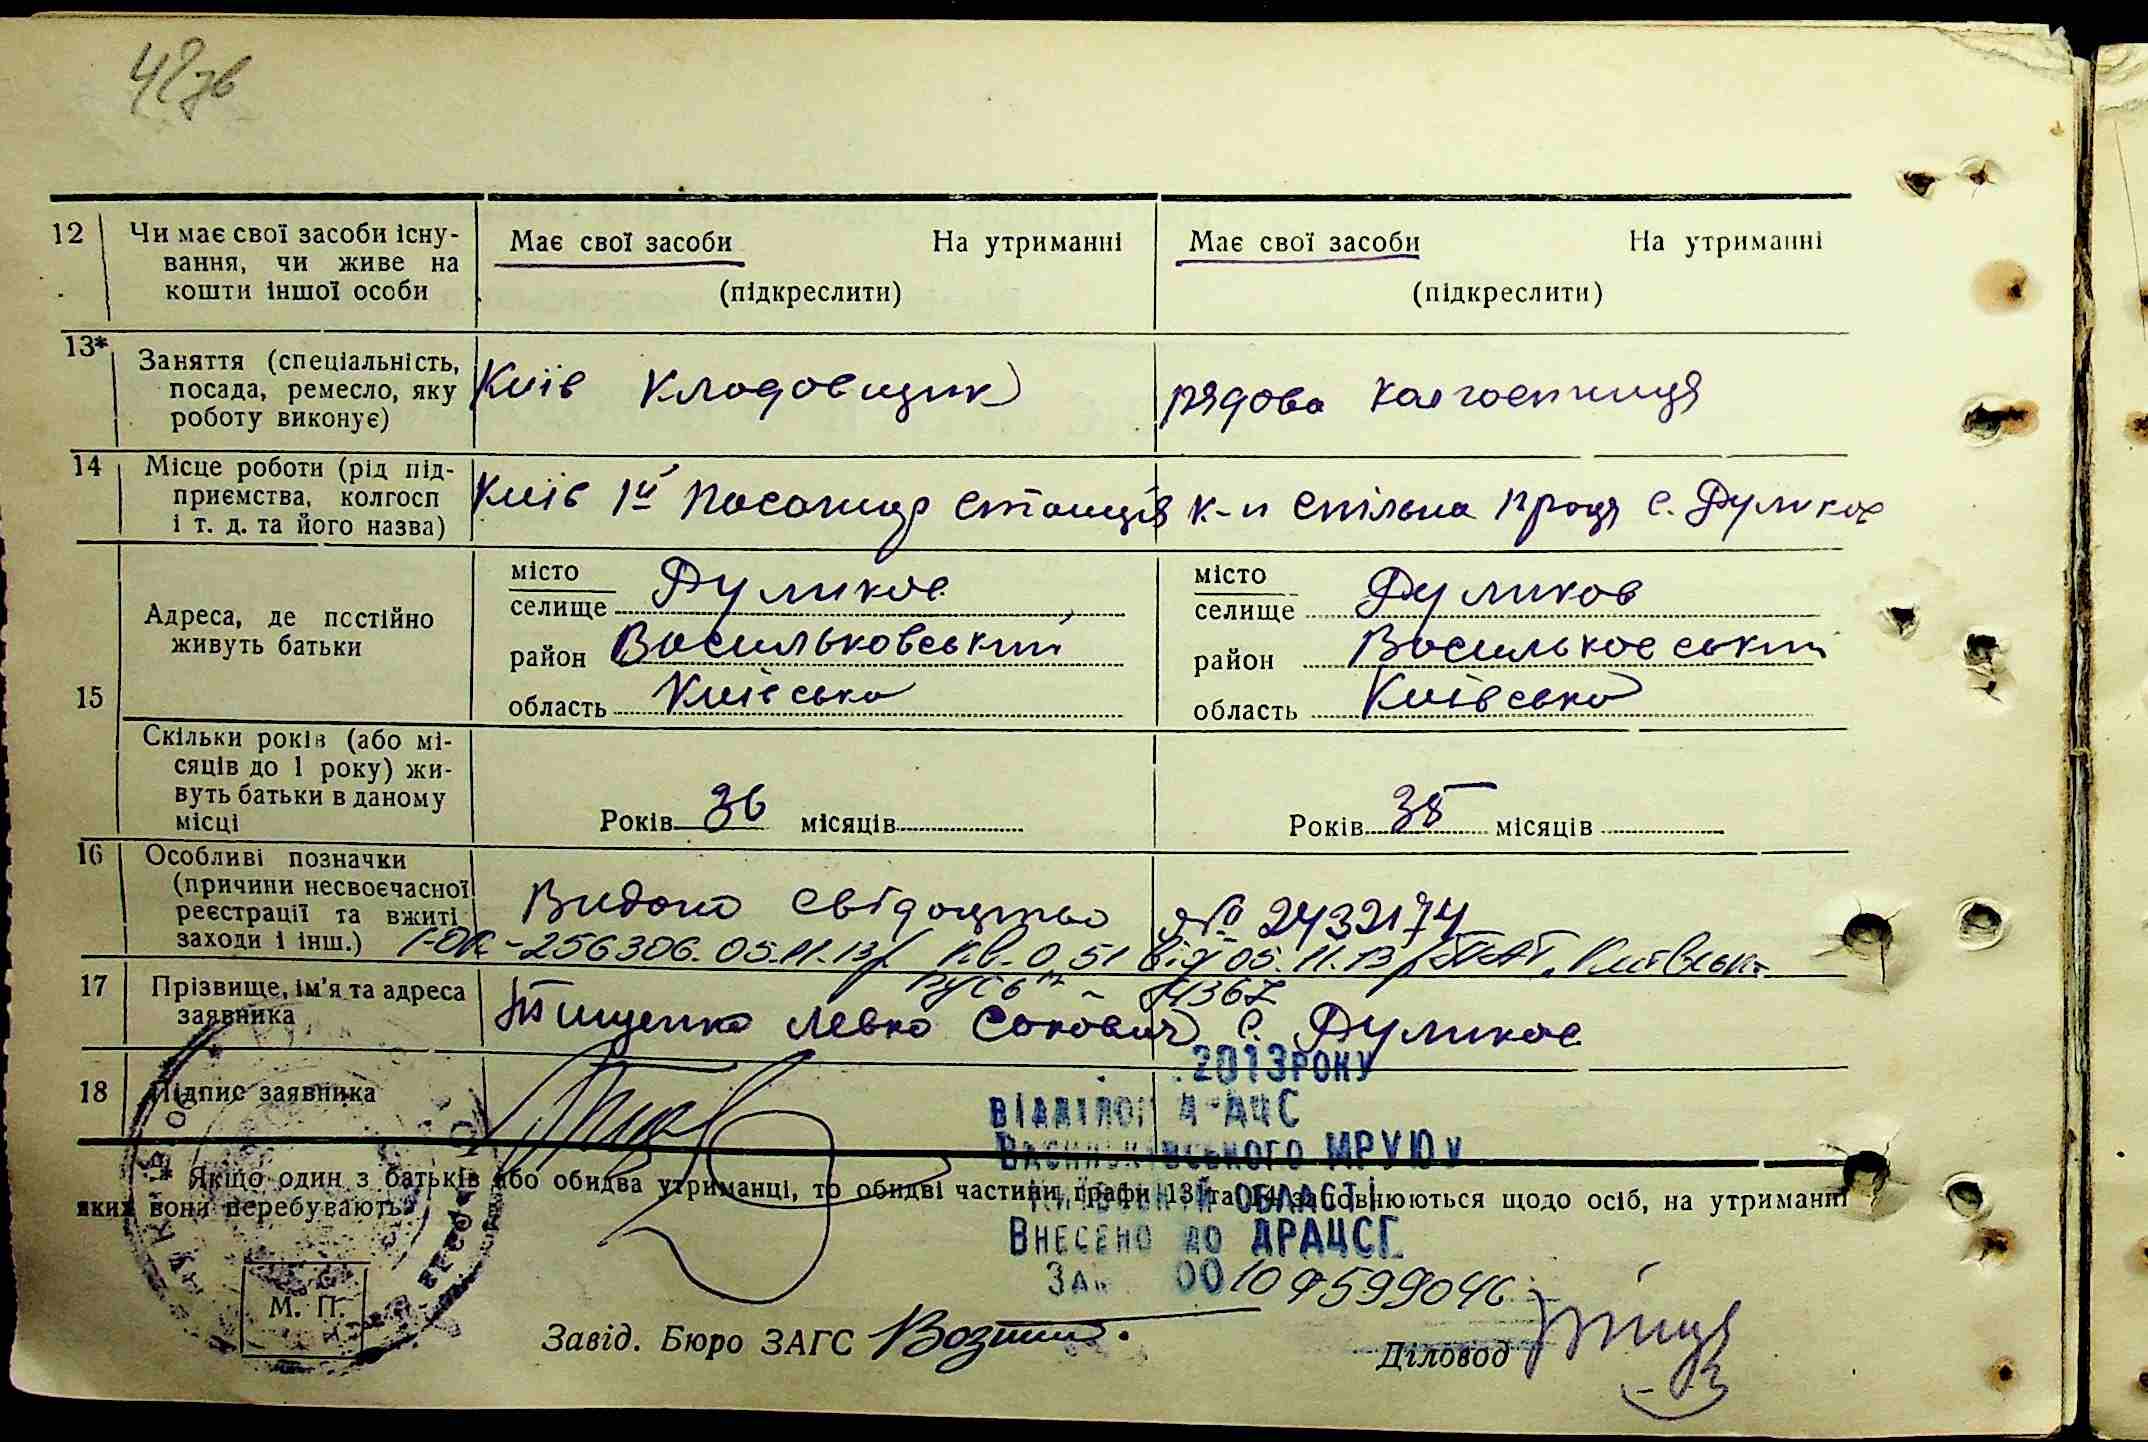 42 зв
12 Чи має свої засоби існу- Має свої засоби На утриманні Має свої засоби На утриманні
вання, чи живе на
кошти іншої особи (підкреслити) (підкреслити)
13* Заняття (спеціальність,
посада, ремесло, яку Київ кладовщик рядова колгоспниця
роботу виконує)
14 Місце роботи (рід під-
приємства, колгосп Київ 1й станція к-п Спільна праця с. Дуликов
і т. д. та його назва)
15 Адреса, де постійно живуть батьки
місто
селище Дуликов
район Васильковський
область Київська
місто
селище Дуликов
район Васильковський
область Київська
Скільки років (або мі-
сяців до 1 року) жи-
вуть батьки в даному
місці Років 36 місяців Років 35 місяців
16 Особливі позначки
(причини несвоєчасної
реєстрації та вжиті Видано свідоцтво № 2432174
заходи і інш.) 1-ОК-256306. 05.11.13р. кв. 0,51 від 05.11.13р. ПАТ "Київська
Русь"
17 Прізвище, ім'я та адреса
заявника Тищенко Левко с. Дуликов
18 Підпис заявника
2013 РОКУ
ВІДДІЛОМ ДРАЦС
ВАСИЛЬКІВСЬКОГО МРУЮ У
КИЇВСЬКІЙ ОБЛАСТІ
ВНЕСЕНО ДО ДРАЦСГ
ЗА 00109599046
* Якщо один з батьків або обидва утриманці, то обидві частини графи 13 та 14 заповнюються щодо осіб, на утриманні
яких вони перебувають.
М. П.
Завід. Бюро ЗАГС Діловод